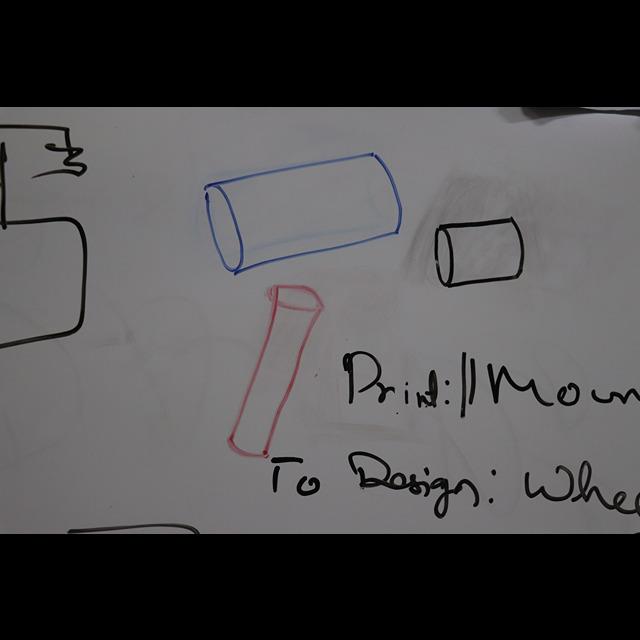 Print: // Moun
To Design: Whee